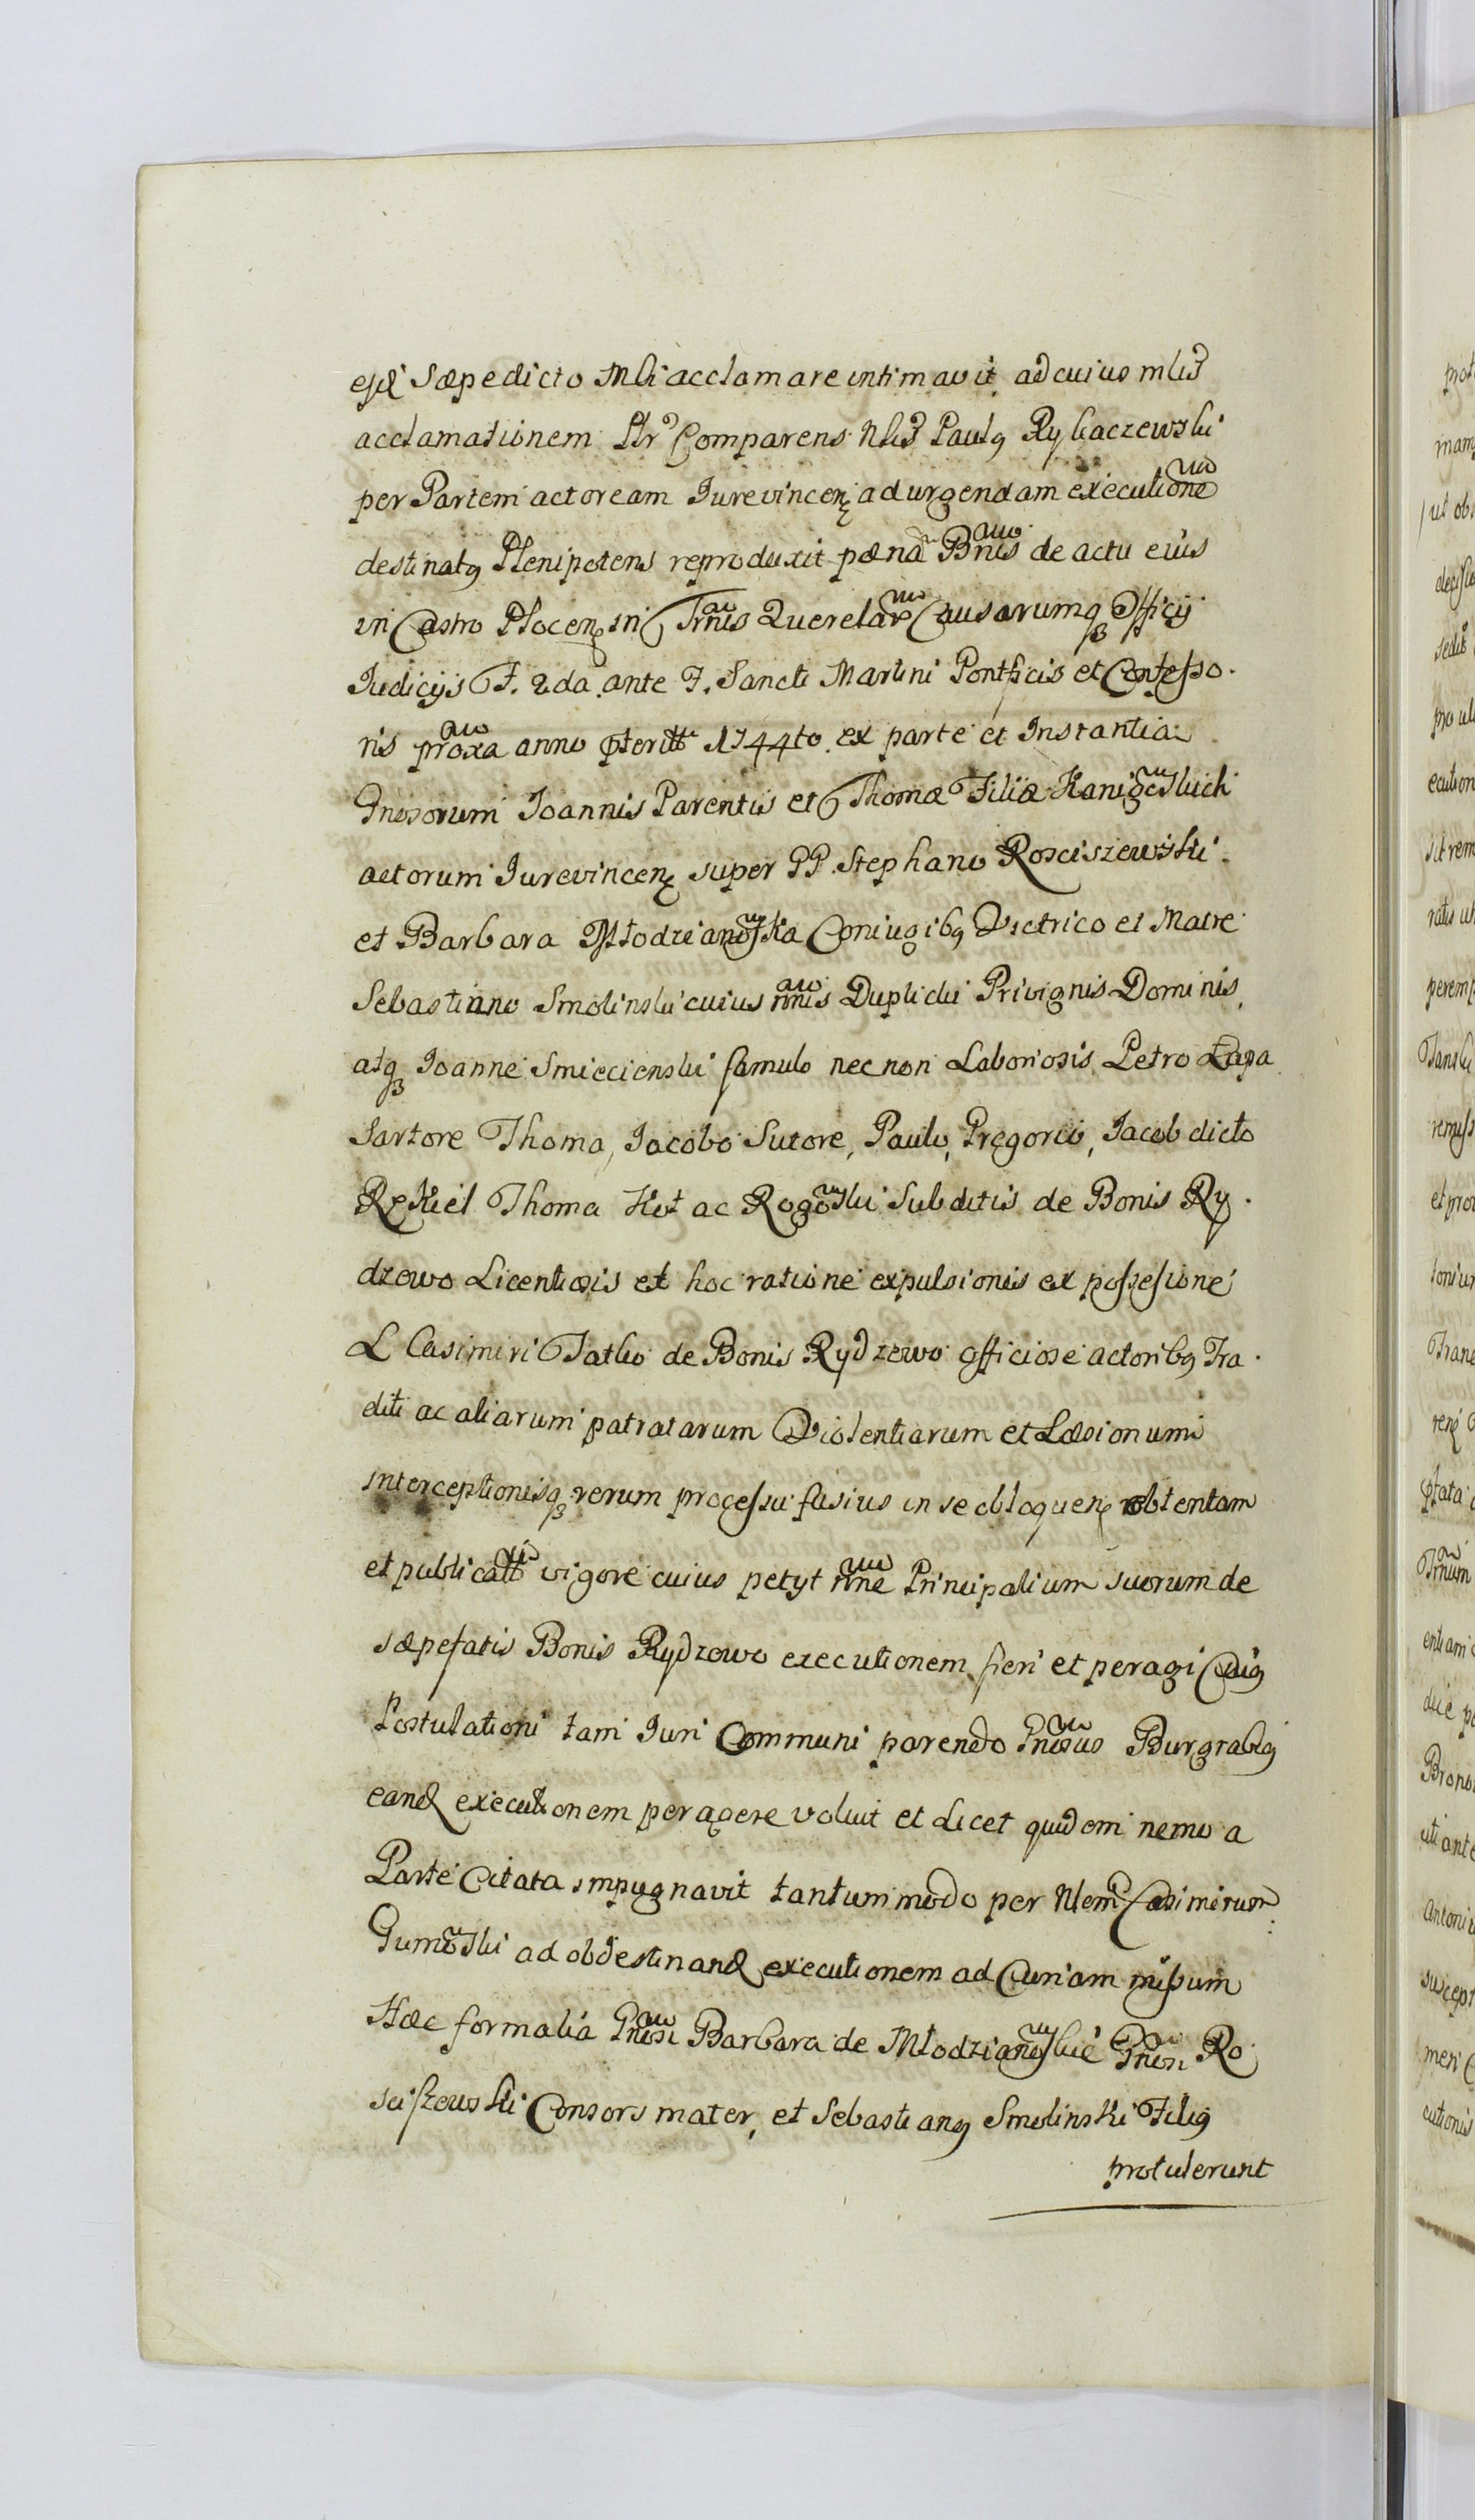 ejꝗ Sæpedicto Mlri acclamare intimavit ad cuius mlis
acclamationem Pltr Comparens Nlis Paulꝯ Rybaczewski
per Partem actoream Jurevincen ad urgendam executione
destinatꝯ Plenipotens reproduxit pœna Bnis de actu eius
in Castro Plocen in Trnis Querelare Causarumqꝫ Officij
Judicijs F. 2da ante F. Sancti Martini Pontficis et Confesso.
ris proxa anno pterito 1744to ex parte et Instantia
Gnosorum Joannis Parentis et Thomæ Filiæ Kanigoskich
actorum Jurevincen super PP. Stephano Rosciszewski
et Barbara Młodzianoska Coniugibꝯ Victrico et Matre
Sebastiano Smolinski cuius nnis Duplicki Privignis Dominis
atqꝫ Joanne Smiecienski famulo nec non Laboriosis Petro Łapa
Sartore Thoma, Jacobo Sutore, Paulo, Gregorio, Jacob dicto
Rekiel Thoma Kit ac Rogoski Subditis de Bonis Ry.
dzewo Licentiosis et hoc ratione expulsionis ex possesione
L Casimiri Jatko de Bonis Rydzewo officiose actoribꝯ Tra.
diti ac aliarum patratarum Violentiarum et Læsionum
interceptionisqꝫ rerum processu fusius in se obloquen obtentam
et publicatt vigore cuius petyt nne Principalium suorum de
sæpefatis Bonis Rydzewo executionem fieri et peragi Cuiꝯ
Postulationi tam Juri Communi parendo Gnosus Burgrabiꝯ
eand executionem peragere voluit et Licet quidem nemo a
Parte Citata impugnavit tantummodo per Nlem Casimirum
Gumoski ad obdestinand executionem ad Curiam missum
Hæc formalia Gnosi Barbara de Młodzianoskie Gnosi Ro
sciszewski Consors mater, et Sebastianꝯ Smolinski Filiꝯ
protulerunt